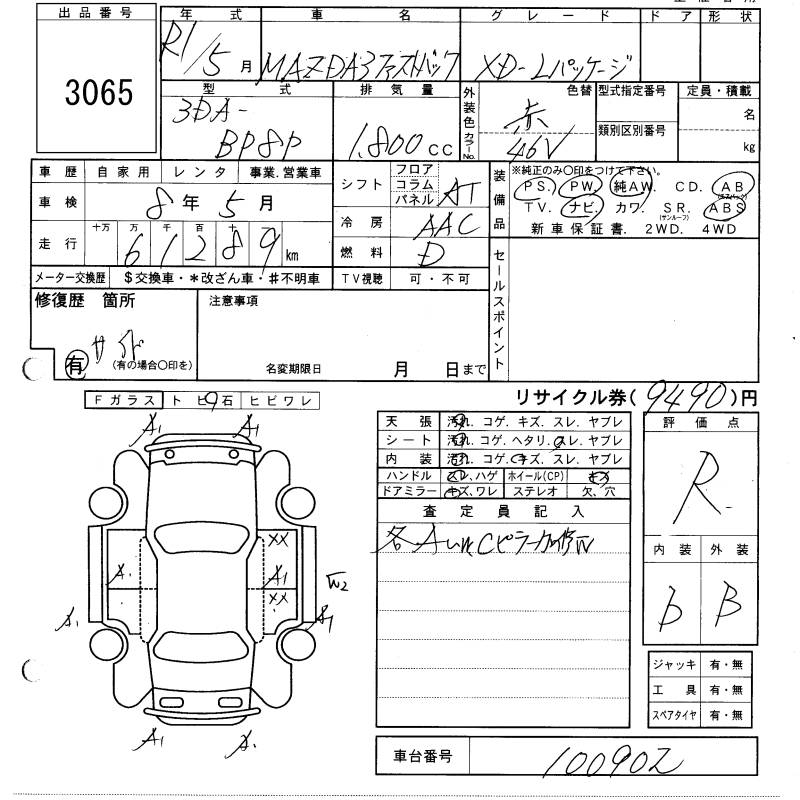 出品番号
3065
年 式 車 名 グ レ ー ド ド ア 形 状
R1/5月 MAZDA3ファストバック XD-Lパッケージ
型 式 排 気 量 外装色 カラーNo. 色替 型式指定番号 定員・積載
3DA-BP8P 1.800cc 赤 46V 類別区別番号 名 kg
車 歴 自 家 用 レ ン タ 事業.営業車
車 検 8年5月
走 行 十万 万 千 百 十 61289km
メーター交換歴 $交換車・*改ざん車・♯不明車
シフト フロア コラム パネル AT
冷 房 AAC
燃 料 D
TV視聴 可・不可
装備品 ※純正のみ〇印をつけて下さい。
PS. PW. 純AW. CD. AB
(エアバック)
TV. ナビ. カワ. SR. ABS
(サンルーフ)
新車保証書. 2WD. 4WD
セールスポイント
修復歴 箇所 注意事項
サイド
有 (有の場合〇印を) 名変期限日 月 日まで
リサイクル券(9490)円
Fガラス トビ石 ヒビワレ
天 張 汚れ. コゲ. キズ. スレ. ヤブレ
シート 汚れ. コゲ. ヘタリ. スレ. ヤブレ
内 装 汚れ. コゲ. キズ. スレ. ヤブレ
ハンドル スレ、ハゲ ホイール(CP) キズ
ドアミラー キズ、ワレ ステレオ 欠、穴
査 定 員 記 入
評 価 点
R
内 装 外 装
b B
A1 A1
XX
A. A1
XX
W2
A. A1
A1 A.
ジャッキ 有・無
工 具 有・無
スペアタイヤ 有・無
車台番号 100902